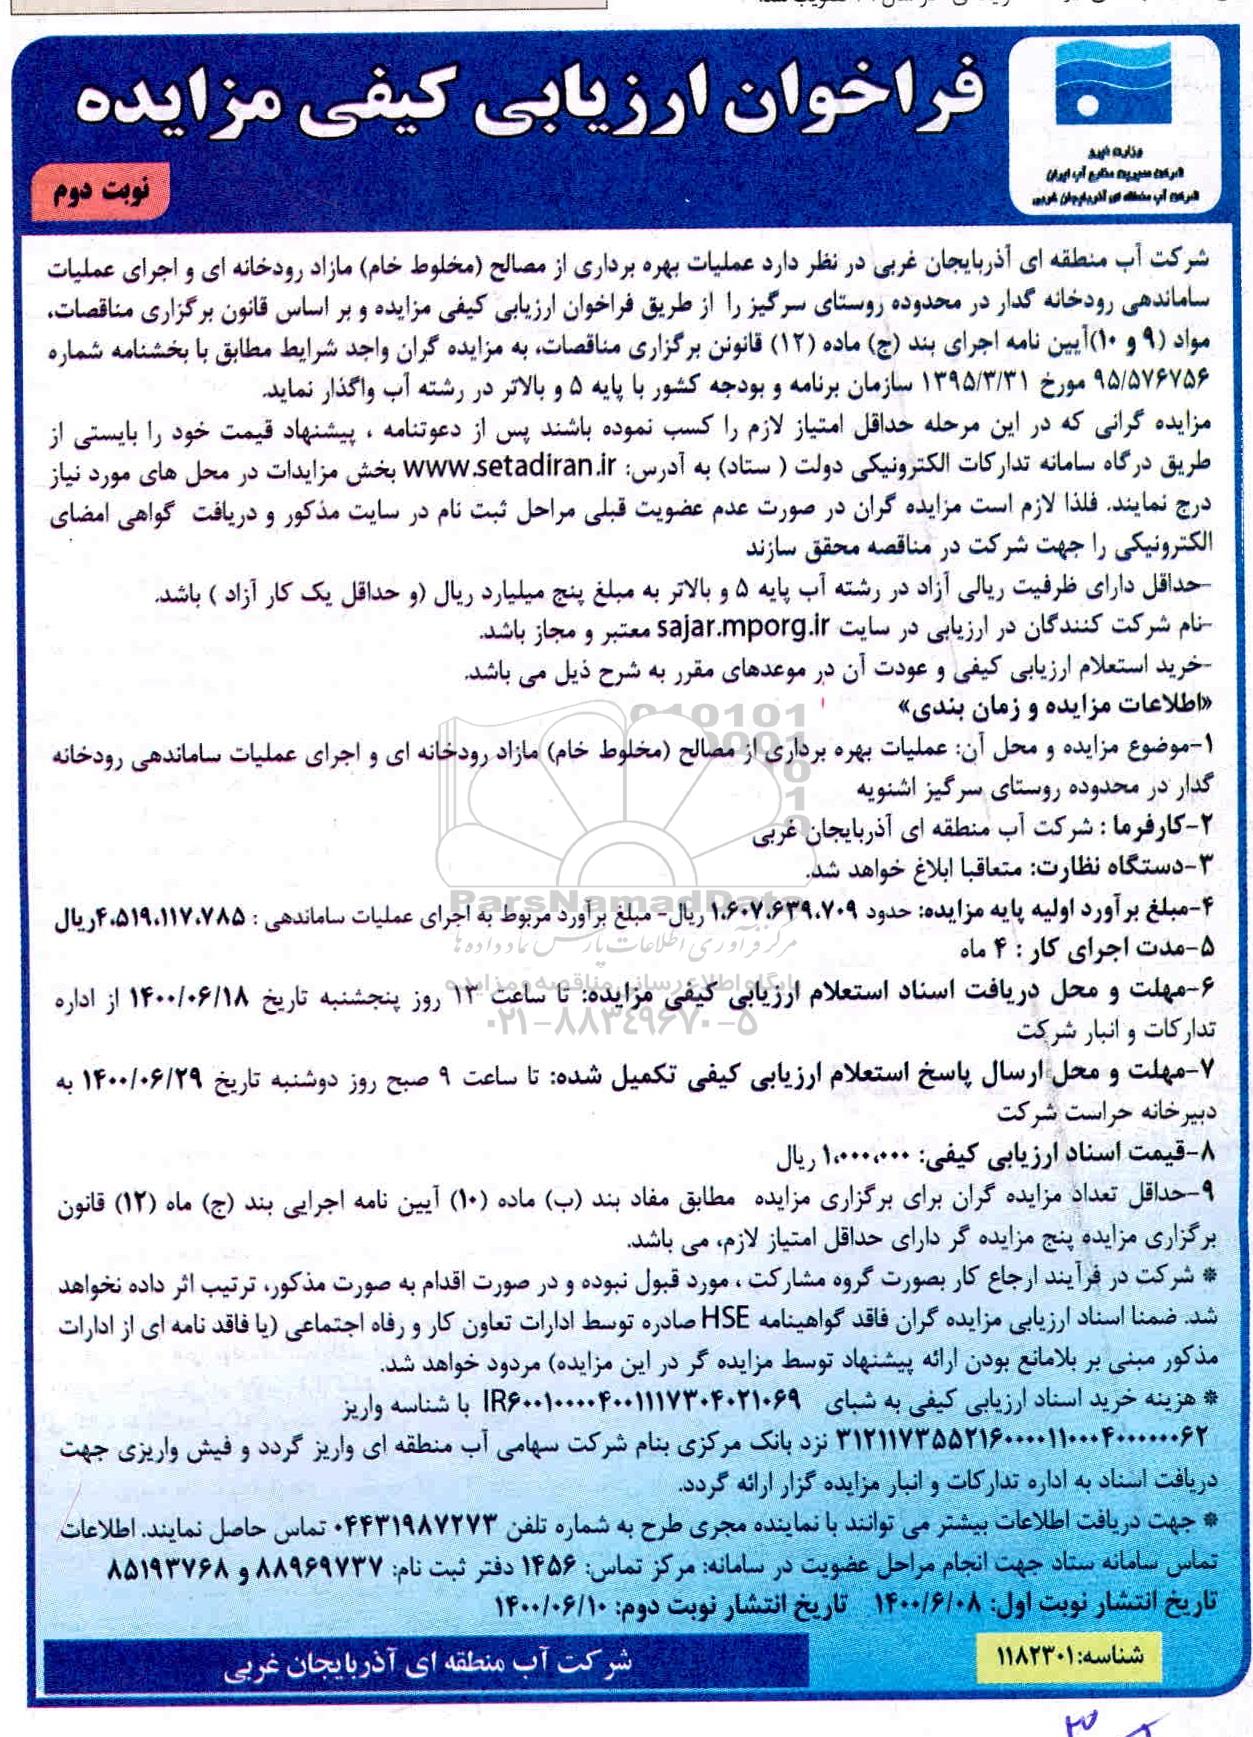 فراخوان ارزیابی کیفی مزایده
وزارت نیرو
شرکت مدیریت منابع آب ایران
شرکت آب منطقه ای آذربایجان غربی
نوبت دوم
شرکت آب منطقه ای آذربایجان غربی در نظر دارد عملیات بهره برداری از مصالح (مخلوط خام) مازاد رودخانه ای و اجرای عملیات
ساماندهی رودخانه گدار در محدوده روستای سرگیز را از طریق فراخوان ارزیابی کیفی مزایده و بر اساس قانون برگزاری مناقصات،
مواد (۹ و ۱۰)آیین نامه اجرای بند (ج) ماده (۱۲) قانونن برگزاری مناقصات، به مزایده گران واجد شرایط مطابق با بخشنامه شماره
۹۵/۵۷۶۷۵۶ مورخ ۱۳۹۵/۳/۳۱ سازمان برنامه و بودجه کشور با پایه ۵ و بالاتر در رشته آب واگذار نماید.
مزایده گرانی که در این مرحله حداقل امتیاز لازم را کسب نموده باشند پس از دعوتنامه ، پیشنهاد قیمت خود را بایستی از
طریق درگاه سامانه تدارکات الکترونیکی دولت ( ستاد) به آدرس: www.setadiran.ir بخش مزایدات در محل های مورد نیاز
درج نمایند. فلذا لازم است مزایده گران در صورت عدم عضویت قبلی مراحل ثبت نام در سایت مذکور و دریافت گواهی امضای
الکترونیکی را جهت شرکت در مناقصه محقق سازند
-حداقل دارای ظرفیت ریالی آزاد در رشته آب پایه ۵ و بالاتر به مبلغ پنج میلیارد ریال (و حداقل یک کار آزاد ) باشد.
-نام شرکت کنندگان در ارزیابی در سایت sajar.mporg.ir معتبر و مجاز باشد.
-خرید استعلام ارزیابی کیفی و عودت آن در موعدهای مقرر به شرح ذیل می باشد.
«اطلاعات مزایده و زمان بندی»
۱-موضوع مزایده و محل آن: عملیات بهره برداری از مصالح (مخلوط خام) مازاد رودخانه ای و اجرای عملیات ساماندهی رودخانه
گدار در محدوده روستای سرگیز اشنویه
۲-کارفرما : شرکت آب منطقه ای آذربایجان غربی
۳-دستگاه نظارت: متعاقبا ابلاغ خواهد شد.
ParsNamadData
۴-مبلغ برآورد اولیه پایه مزایده: حدود ۱،۶۰۷،۶۳۹،۷۰۹ ریال- مبلغ برآورد مربوط به اجرای عملیات ساماندهی : ۴،۵۱۹،۱۱۷،۷۸۵ریال
مرکز فرآوری اطلاعات پارس نماد داده ها
۵-مدت اجرای کار : ۴ ماه
پایگاه اطلاع رسانی مناقصه و مزایده
۶-مهلت و محل دریافت اسناد استعلام ارزیابی کیفی مزایده: تا ساعت ۱۳ روز پنجشنبه تاریخ ۱۴۰۰/۰۶/۱۸ از اداره
تدارکات و انبار شرکت
۰۲۱-۸۸۳۴۹۶۷۰-۵
۷-مهلت و محل ارسال پاسخ استعلام ارزیابی کیفی تکمیل شده: تا ساعت ۹ صبح روز دوشنبه تاریخ ۱۴۰۰/۰۶/۲۹ به
دبیرخانه حراست شرکت
۸-قیمت اسناد ارزیابی کیفی: ۱،۰۰۰،۰۰۰ ریال
۹-حداقل تعداد مزایده گران برای برگزاری مزایده مطابق مفاد بند (ب) ماده (۱۰) آیین نامه اجرایی بند (ج) ماه (۱۲) قانون
برگزاری مزایده پنج مزایده گر دارای حداقل امتیاز لازم، می باشد.
* شرکت در فرآیند ارجاع کار بصورت گروه مشارکت ، مورد قبول نبوده و در صورت اقدام به صورت مذکور، ترتیب اثر داده نخواهد
شد. ضمنا اسناد ارزیابی مزایده گران فاقد گواهینامه HSE صادره توسط ادارات تعاون کار و رفاه اجتماعی (یا فاقد نامه ای از ادارات
مذکور مبنی بر بلامانع بودن ارائه پیشنهاد توسط مزایده گر در این مزایده) مردود خواهد شد.
* هزینه خرید اسناد ارزیابی کیفی به شبای IR۶۰۰۱۰۰۰۰۴۰۰۱۱۱۷۳۰۴۰۲۱۰۶۹ با شناسه واریز
۳۱۲۱۱۷۳۵۵۲۱۶۰۰۰۰۱۱۰۰۰۴۰۰۰۰۰۰۶۲ نزد بانک مرکزی بنام شرکت سهامی آب منطقه ای واریز گردد و فیش واریزی جهت
دریافت اسناد به اداره تدارکات و انبار مزایده گزار ارائه گردد.
* جهت دریافت اطلاعات بیشتر می توانند با نماینده مجری طرح به شماره تلفن ۰۴۴۳۱۹۸۷۲۷۳ تماس حاصل نمایند. اطلاعات
تماس سامانه ستاد جهت انجام مراحل عضویت در سامانه: مرکز تماس: ۱۴۵۶ دفتر ثبت نام: ۸۸۹۶۹۷۳۷ و ۸۵۱۹۳۷۶۸
تاریخ انتشار نوبت اول: ۱۴۰۰/۶/۰۸ تاریخ انتشار نوبت دوم: ۱۴۰۰/۰۶/۱۰
شناسه:۱۱۸۲۳۰۱
شرکت آب منطقه ای آذربایجان غربی